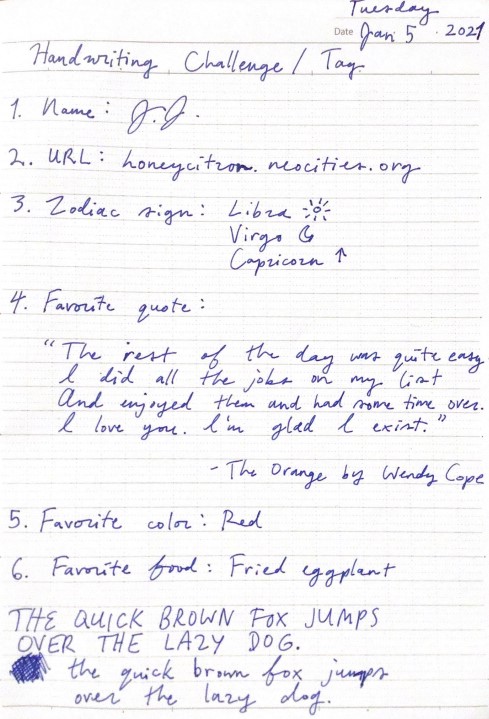 Tuesday
Date Jan 5 · 2021
Handwriting Challenge / Tag
1. Name: J.J.
2. URL: honeycitron.neocities.org
3. Zodiac sign: Libra ☼
Virgo ☾
Capricorn ↑
4. Favorite quote:
"The rest of the day was quite easy
I did all the jobs on my list
And enjoyed them and had some time over.
I love you. I'm glad I exist."
- The Orange by Wendy Cope
5. Favorite color: Red
6. Favorite food: Fried eggplant
THE QUICK BROWN FOX JUMPS
OVER THE LAZY DOG.
the quick brown fox jumps
over the lazy dog.